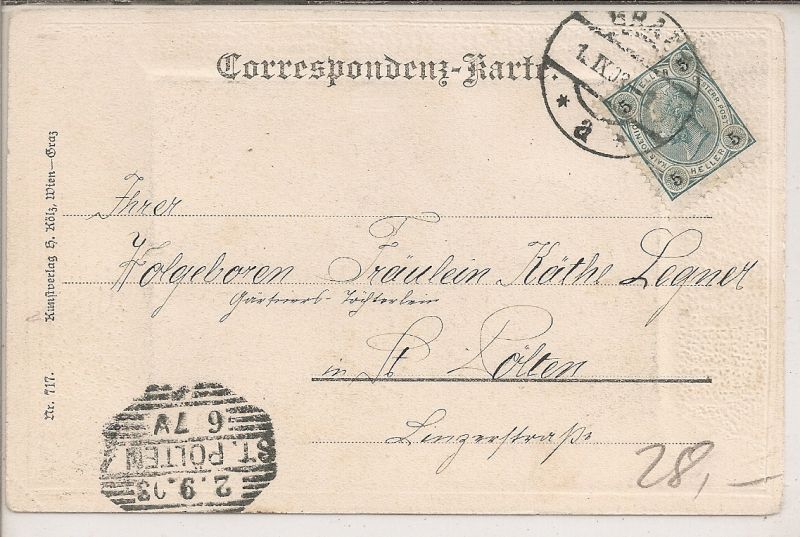 Correspondenz-Karte.
GRAZ
1. IX 03
* a *
5 5 5 5
HELLER
HELLER
Ihrer
Wolgeboren Fräulein Käthe Legner
Gärtners-Töchterlein
in St Pölten
Linzerstraße
28,—
Nr. 717. Kunstverlag H. Kölz, Wien—Graz
ST. PÖLTEN
2.9.03
6 7V